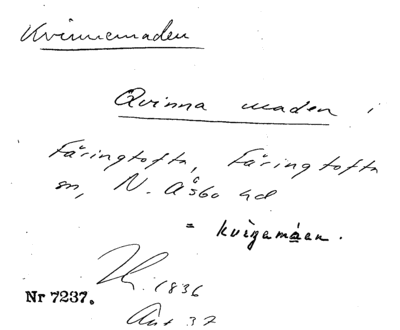 Kvinnemaden
Qvinna maden i
Färingtofta, Färingtofta
sn, N. Åsbo hd
= kvigamáen.
1836
Nr 7237.
Ant 37